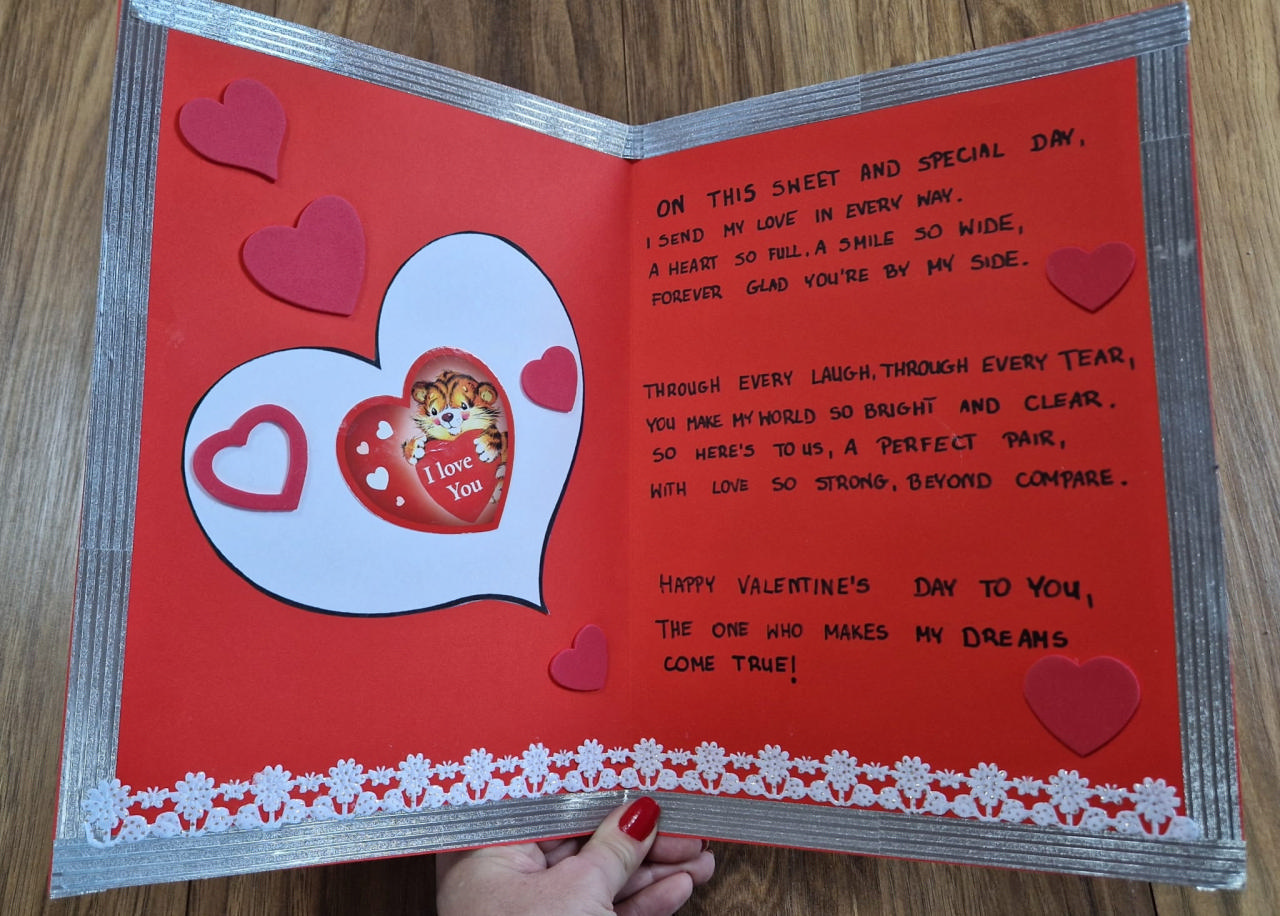 I love
You
ON THIS SWEET AND SPECIAL DAY,
I SEND MY LOVE IN EVERY WAY.
A HEART SO FULL, A SMILE SO WIDE,
FOREVER GLAD YOU'RE BY MY SIDE.
THROUGH EVERY LAUGH, THROUGH EVERY TEAR,
YOU MAKE MY WORLD SO BRIGHT AND CLEAR.
SO HERE'S TO US, A PERFECT PAIR,
WITH LOVE SO STRONG, BEYOND COMPARE.
HAPPY VALENTINE'S DAY TO YOU,
THE ONE WHO MAKES MY DREAMS
COME TRUE!